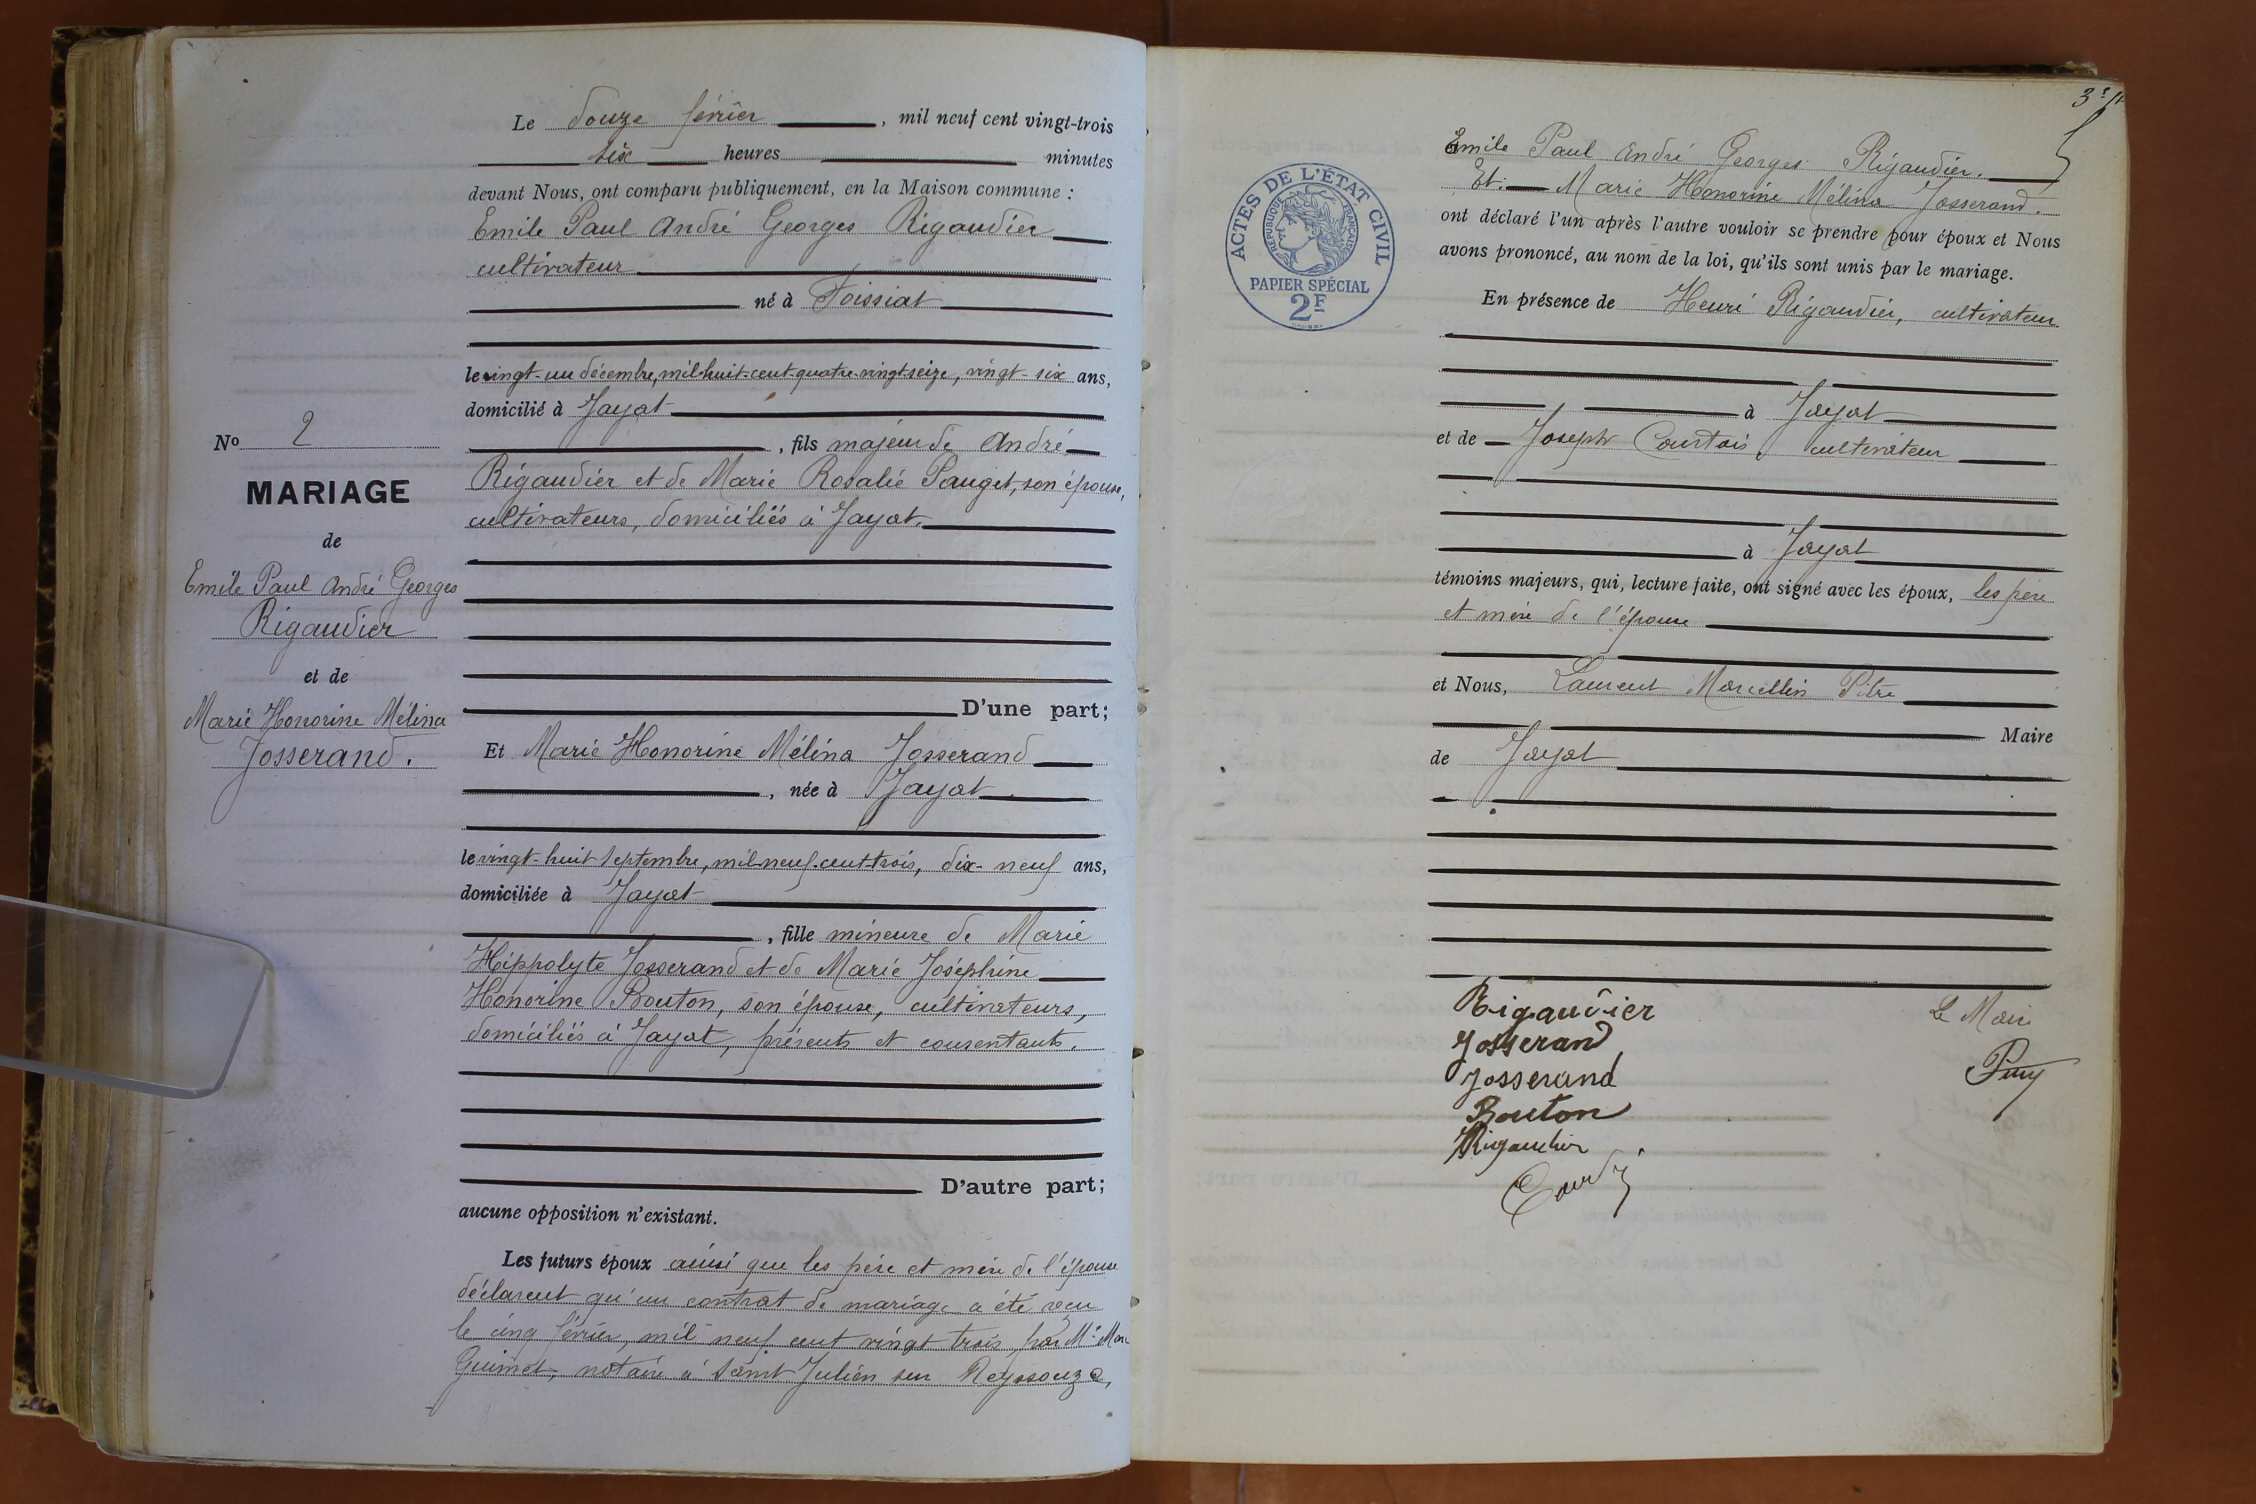 Le douze février, mil neuf cent vingt-trois
six heures minutes
devant Nous, ont comparu publiquement, en la Maison commune :
Emile Paul André Georges Rigaudier
cultivateur
né à Foissiat
le vingt-un décembre, mil-huit-cent-quatre-vingt-seize, vingt-six ans,
domicilié à Jayat
, fils majeur de André
Rigaudier et de Marie Rosalie Pauget, son épouse,
cultivateurs, domiciliés à Jayat.
D'une part;
Et Marie Honorine Mélina Josserand
, née à Jayat
le vingt-huit septembre, mil neuf-cent-trois, dix-neuf ans,
domiciliée à Jayat
, fille mineure de Marie
Hippolyte Josserand et de Marie Joséphine
Honorine Bouton, son épouse, cultivateurs,
domiciliés à Jayat, présents et consentants.
D'autre part;
aucune opposition n'existant.
Les futurs époux ainsi que les père et mère de l'épouse
déclarent qu'un contrat de mariage a été reçu
le cinq février, mil neuf cent vingt trois, par Me Marc
Guimet, notaire à Saint Julien sur Reyssouze,
No 2
MARIAGE
de
Emile Paul André Georges
Rigaudier
et de
Marie Honorine Mélina
Josserand.
ACTES DE L'ÉTAT CIVIL
RÉPUBLIQUE FRANÇAISE
PAPIER SPÉCIAL
2F
Emile Paul André Georges Rigaudier.
Et Marie Honorine Mélina Josserand.
ont déclaré l'un après l'autre vouloir se prendre pour époux et Nous
avons prononcé, au nom de la loi, qu'ils sont unis par le mariage.
En présence de Henri Rigaudier, cultivateur
à Jayat
et de Joseph Courtois cultivateur
à Jayat
témoins majeurs, qui, lecture faite, ont signé avec les époux, les père
et mère de l'épouse
et Nous, Laurent Marcellin Pitre
Maire
de Jayat
Rigaudier
Josserand
Josserand
Bouton
Rigaudier
Le Maire